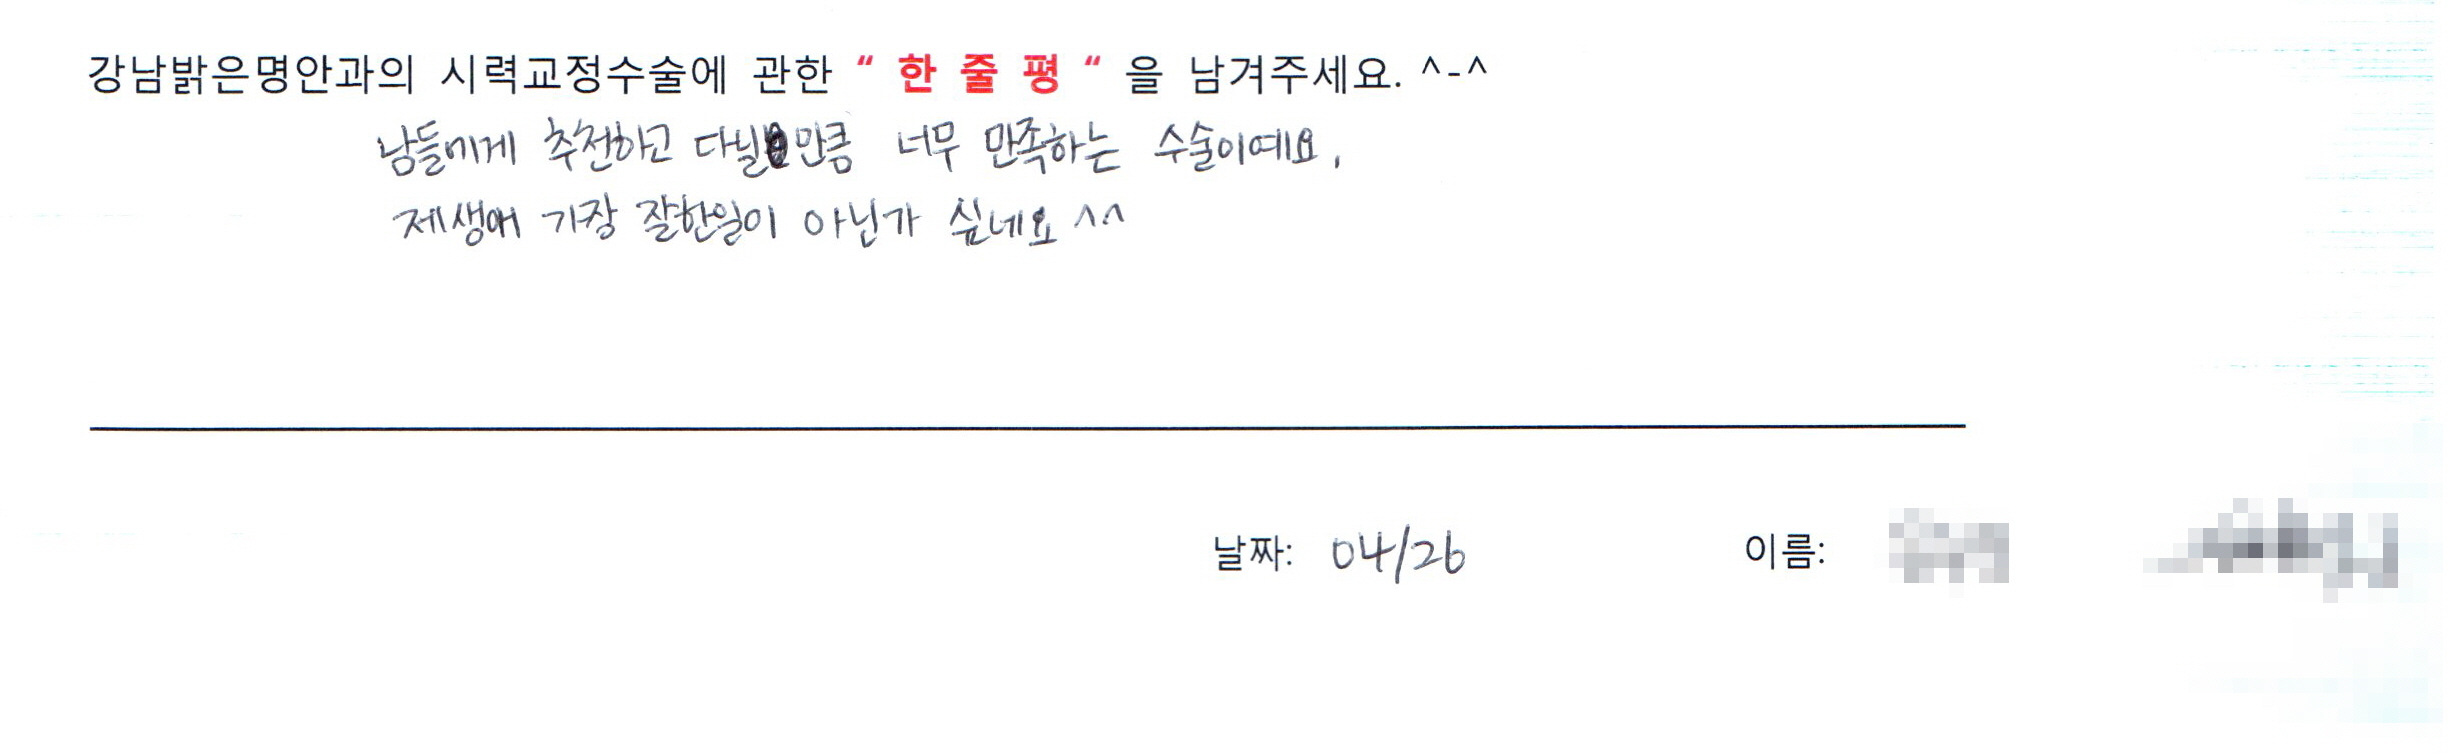 강남밝은명안과의 시력교정수술에 관한 “ 한 줄 평 “ 을 남겨주세요. ^-^
남들에게 추천하고 다닐만큼 너무 만족하는 수술이예요,
제생애 가장 잘한일이 아닌가 싶네요 ^^
날짜: 04/26 이름: